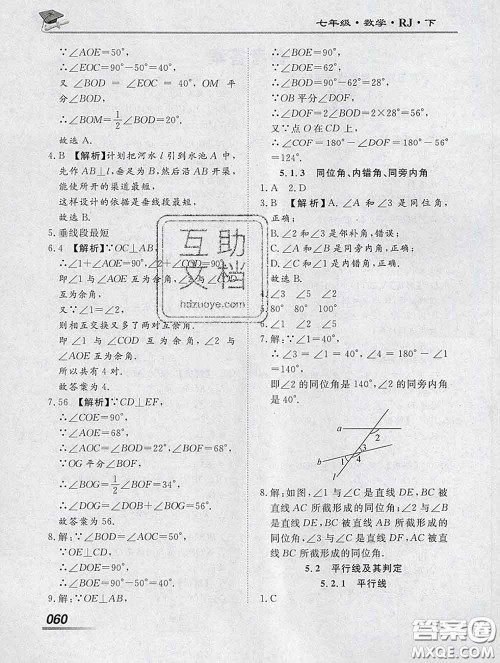 七年级·数学·RJ·下
∵∠AOE=50°,
∴∠EOC=90°-50°=40°,
又 ∠BOD=∠EOC=40°, OM 平分∠BOD,
∴∠BOM=1/2∠BOD=20°.
故选 A.
4. B 【解析】计划把河水 l 引到水池 A 中,
先作AB⊥l,垂足为 B,然后沿 AB 开挖,
能使所开的渠道最短,
这样设计的依据是垂线段最短.
故选 B.
5. 垂线段最短
6. 4 【解析】∵OC⊥AB,
∴∠1+∠AOE=90°,∠2+∠COD=90°,
即∠1与∠AOE互为余角,∠2与∠COD
互为余角,
又∵∠1=∠2,
则相互交换又多了两对互余角.
即∠1与∠COD互为余角,∠2与∠AOE
互为余角.
所以共有 4 对.
故答案为 4.
7. 56 【解析】∵CD⊥EF,
∴∠COE=90°,
∵∠AOE=68°,
∴∠AOC=∠BOD=22°,∠BOF=68°,
∵OG 平分∠BOF,
∴∠BOG=1/2∠BOF=34°,
∴∠DOG=∠DOB+∠BOG=56°.
故答案为 56.
8. 解:∵∠BOD=∠AOC=50°,
∵OE⊥CD,
∴∠DOE=90°,
∴∠BOE=90°-50°=40°.
9. 解:∵OE⊥AB,
060
∴∠BOE=90°,
∵∠EOD=62°,
∴∠BOD=90°-62°=28°.
∵OB 平分∠DOF,
∴∠DOF=2∠BOD=2×28°=56°.
又∵点 O 在 CD 上,
∴∠COF=180°-∠DOF=180°-56°=124°.
5.1.3 同位角、内错角、同旁内角
1. A 2. D
3. B 【解析】A.∠2 和∠B 是同位角,
正确;
B.∠2 和∠3 是邻补角,错误;
C.∠A 与∠B 是同旁内角,正确;
D.∠1 和∠A 是内错角,正确.
故选 B.
4. ∠3 ∠5 ∠2
5. 80° 80° 100°
6. ∠1 ∠3 ∠2 ∠4
7. 解:∵∠1=40°,
∴∠3=∠4=180°-∠1=140°,
即∠2的同位角是140°,∠2的同旁内角
是140°.
a
b
l
2
3
1
4
8. 解:如图,∠1 与∠C 是直线 DE,BC 被
直线 AC 所截形成的同位角,∠2 与∠B
是直线 DE,BC 被直线 AB 所截形成的
同位角,∠3 与∠C 是直线 DF,AC 被直
线 BC 所截形成的同位角.
5.2 平行线及其判定
5.2.1 平行线
1. C
互助文档
hdzuoye.com
答案圈
MXQE.COM